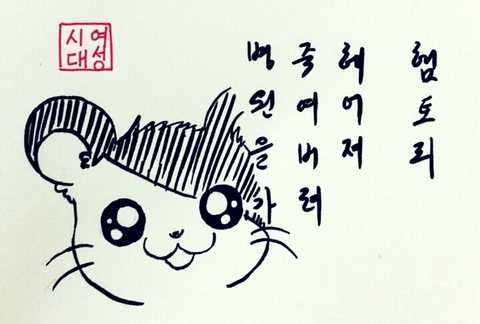 햄토리
헤어저
죽여버려
병원을가
여성
시대